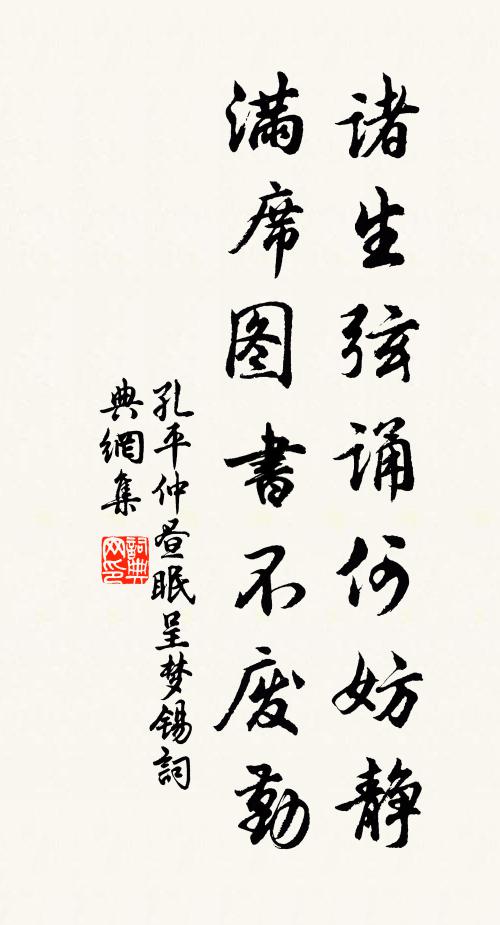 诸生弦诵何妨静
满席图书不废勤
孔平仲昼眠呈梦锡詞
典網集
詞典
网印